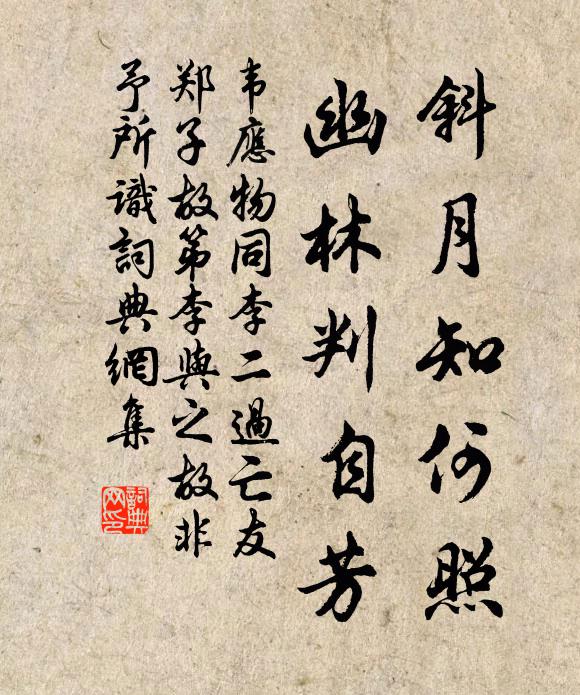 斜月知何照
幽林判自芳
韦應物同李二過亡友
郑子故第李與之故非
予所識詞典網集
詞典网印